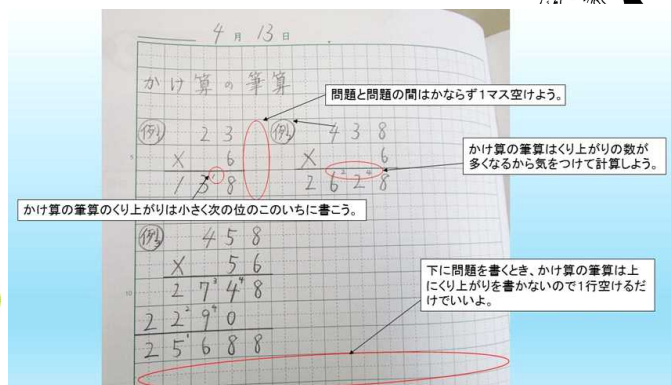 4月13日
かけ算の筆算
問題と問題の間はかならず1マス空けよう。
例1 23
× 6
138
例2 438
× 6
2628
かけ算の筆算はくり上がりの数が
多くなるから気をつけて計算しよう。
かけ算の筆算のくり上がりは小さく次の位のこのいちに書こう。
例3 458
× 56
2748
2290
25688
下に問題を書くとき、かけ算の筆算は上
にくり上がりを書かないので1行空けるだ
けでいいよ。